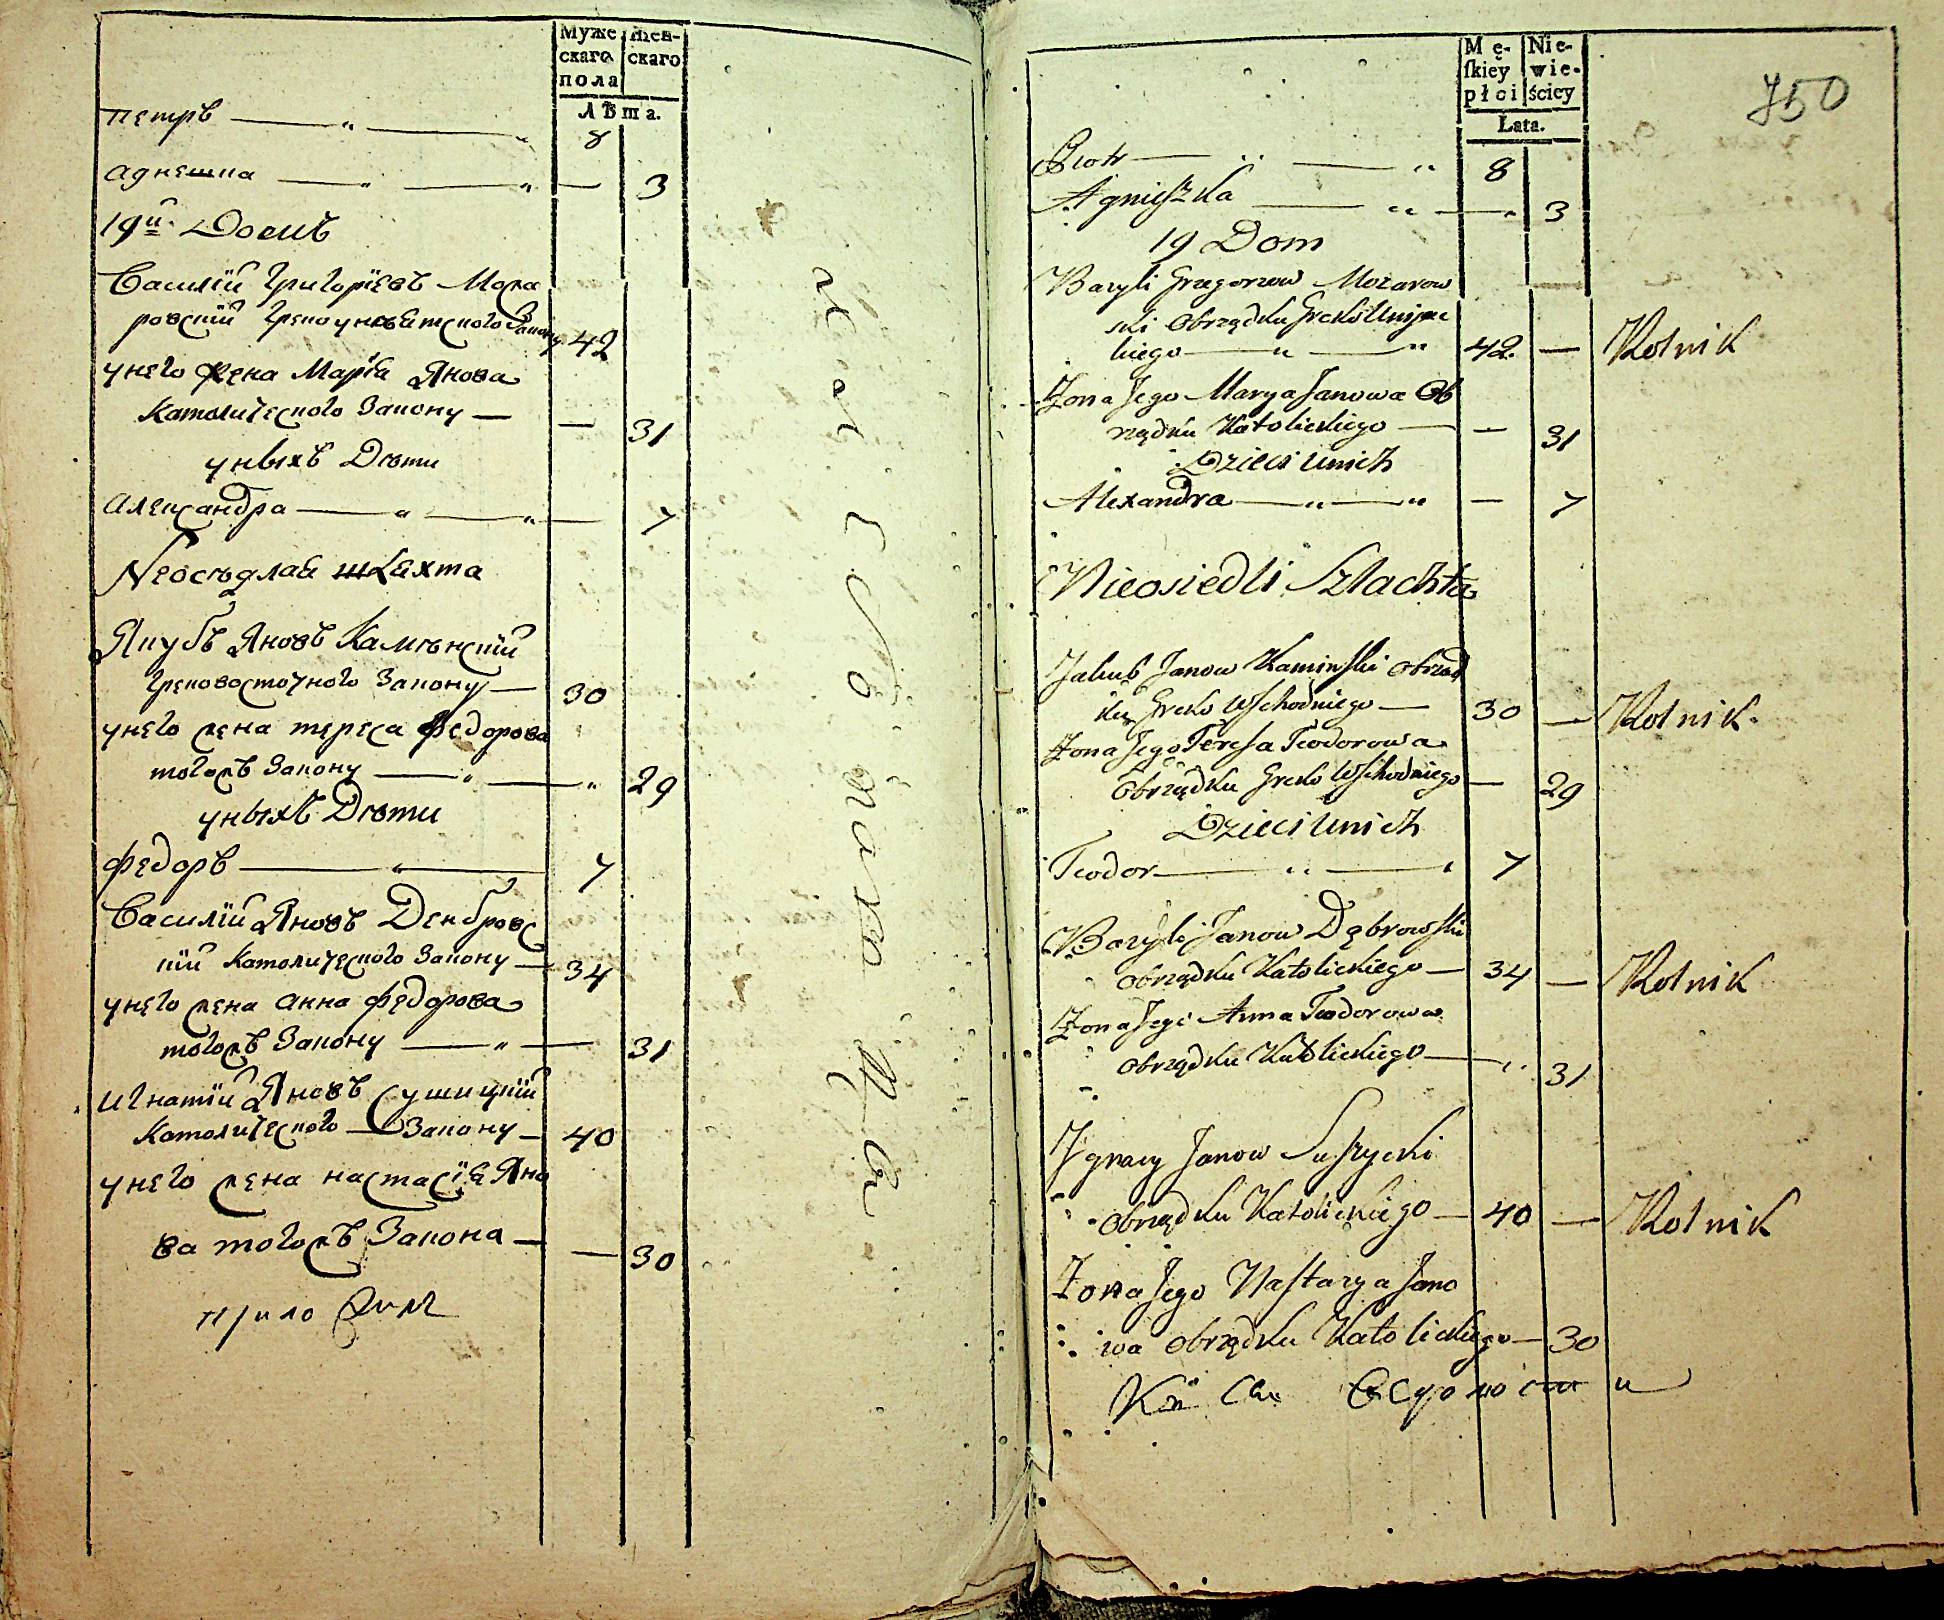 Муже
скаго
пола
Жен-
скаго
Лѣта.
Петръ — „ — „ 8
Агнешка — „ — „ — 3
19й Домъ
Василїй Григорїевъ Моза
ровскїй Грекоунѣятского Закону 42
унего жена Марїа Янова
Католического Закону — — 31
уныхъ Дѣти
Александра — „ — „ — 7
Неосѣдлаа шляхта
Якубъ Яновъ Камѣнскїй
Грековосточного Закону — 30
унего жена Тереса Федорова
тогожъ Закону — „ — „ 29
уныхъ Дѣти
Федоръ — „ — 7
Василїй Яновъ Денбровс
кїй Католического Закону — 34
унего жена Анна Федорова
тогожъ Закону — „ — 31
Игнатїй Яновъ Сушицкїй
Католического — Закону — 40
унего жена Настасїя Яно
ва тогожъ Закона — — 30
750
Mę-
skiey
płci
Nie-
wie-
ściey
Lata.
Piotr — „ — „ 8
Agnieszka — „ — „ 3
19 Dom
Bazyli Grzegorzow Mozarow
ski Obrządku Greko Unijac
kiego — „ — „ 42. — Rolnik
Zona Jego Marya Janowa Ob
rządku Katolickiego — — 31
Dzieci unich
Alexandra — „ — „ — 7
Nieosiedli Szlachta
Jakub Janow Kaminski Obrząd
ku Greko Wschodniego — 30 — Rolnik.
Zona Jego Teresa Teodorowa
Obrządku Greko Wschodniego — 29
Dzieci unich
Teodor — „ — „ 7
Bazyli Janow Dąbrowski
Obrządku Katolickiego — 34 — Rolnik
Zona Jego Anna Teodorowa
Obrządku Katolickiego — „ 31
Jgnacy Janow Suszycki
Obrządku Katolickiego — 40 — Rolnik
Zona Jego Nastazya Jano
wa Obrządku Katolickiego — 30